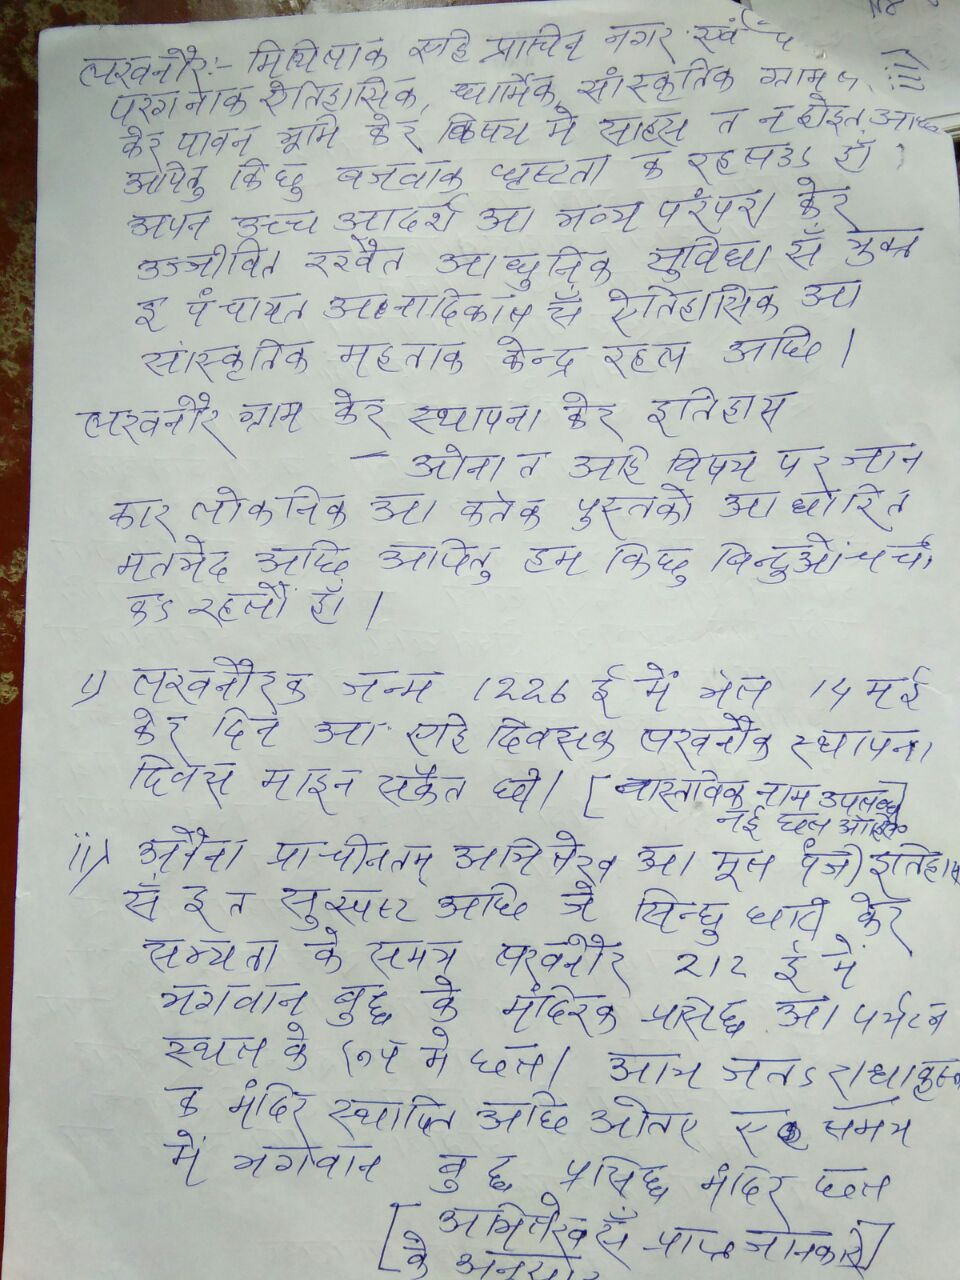 लखनौर:- मिथिलाक एहि प्राचिन नगर एवं
परगनाक ऐतिहासिक, धार्मिक, सांस्कृतिक ग्राम
केर पावन भूमि केर विषय मे साहस त न होइत अछि
अपितु किछु बजवाक धृष्टता क रहलउ हँ।
अपन उच्च आदर्श आ भव्य परंपरा केर
उज्जीवित रखैत आधुनिक सुविधा सँ युक्त
इ पंचायत अनादिकाल सँ ऐतिहासिक आ
सांस्कृतिक महताक केन्द्र रहल अछि।
लखनौर ग्राम केर स्थापना केर इतिहास
– ओना त अहि विषय पर जान
कार लोकनिक आ कतेक पुस्तको आधारित
मतभेद अछि अपितु हम किछु बिन्दुओं चर्चा
कऽ रहलौं हँ।
i) लखनौरक जन्म 1226 ई में भेल 14 मई
केर दिन आ एहि दिवसक लखनौक स्थापना
दिवस माइन सकैत छी। [वास्तविक नाम उपलब्ध
नई छल ओहिक]
ii) अनैना प्राचीनतम् अभिलेख आ मूल पंजी इतिहास
सँ इ त सुस्पष्ट अछि जे सिन्धु घाटी केर
सभ्यता के समय लखनौर 212 ई में
भगवान बुद्ध के मंदिरक प्रसिद्ध आ पर्यटन
स्थल के रूप मे छल। आय जतऽ राधाकृष्ण
क मंदिर स्थापित अछि ओतए एक समय
में भगवान बुद्ध प्रसिद्ध मंदिर छल
[अभिलेख सँ प्राप्त जानकारी]
के अनुसार